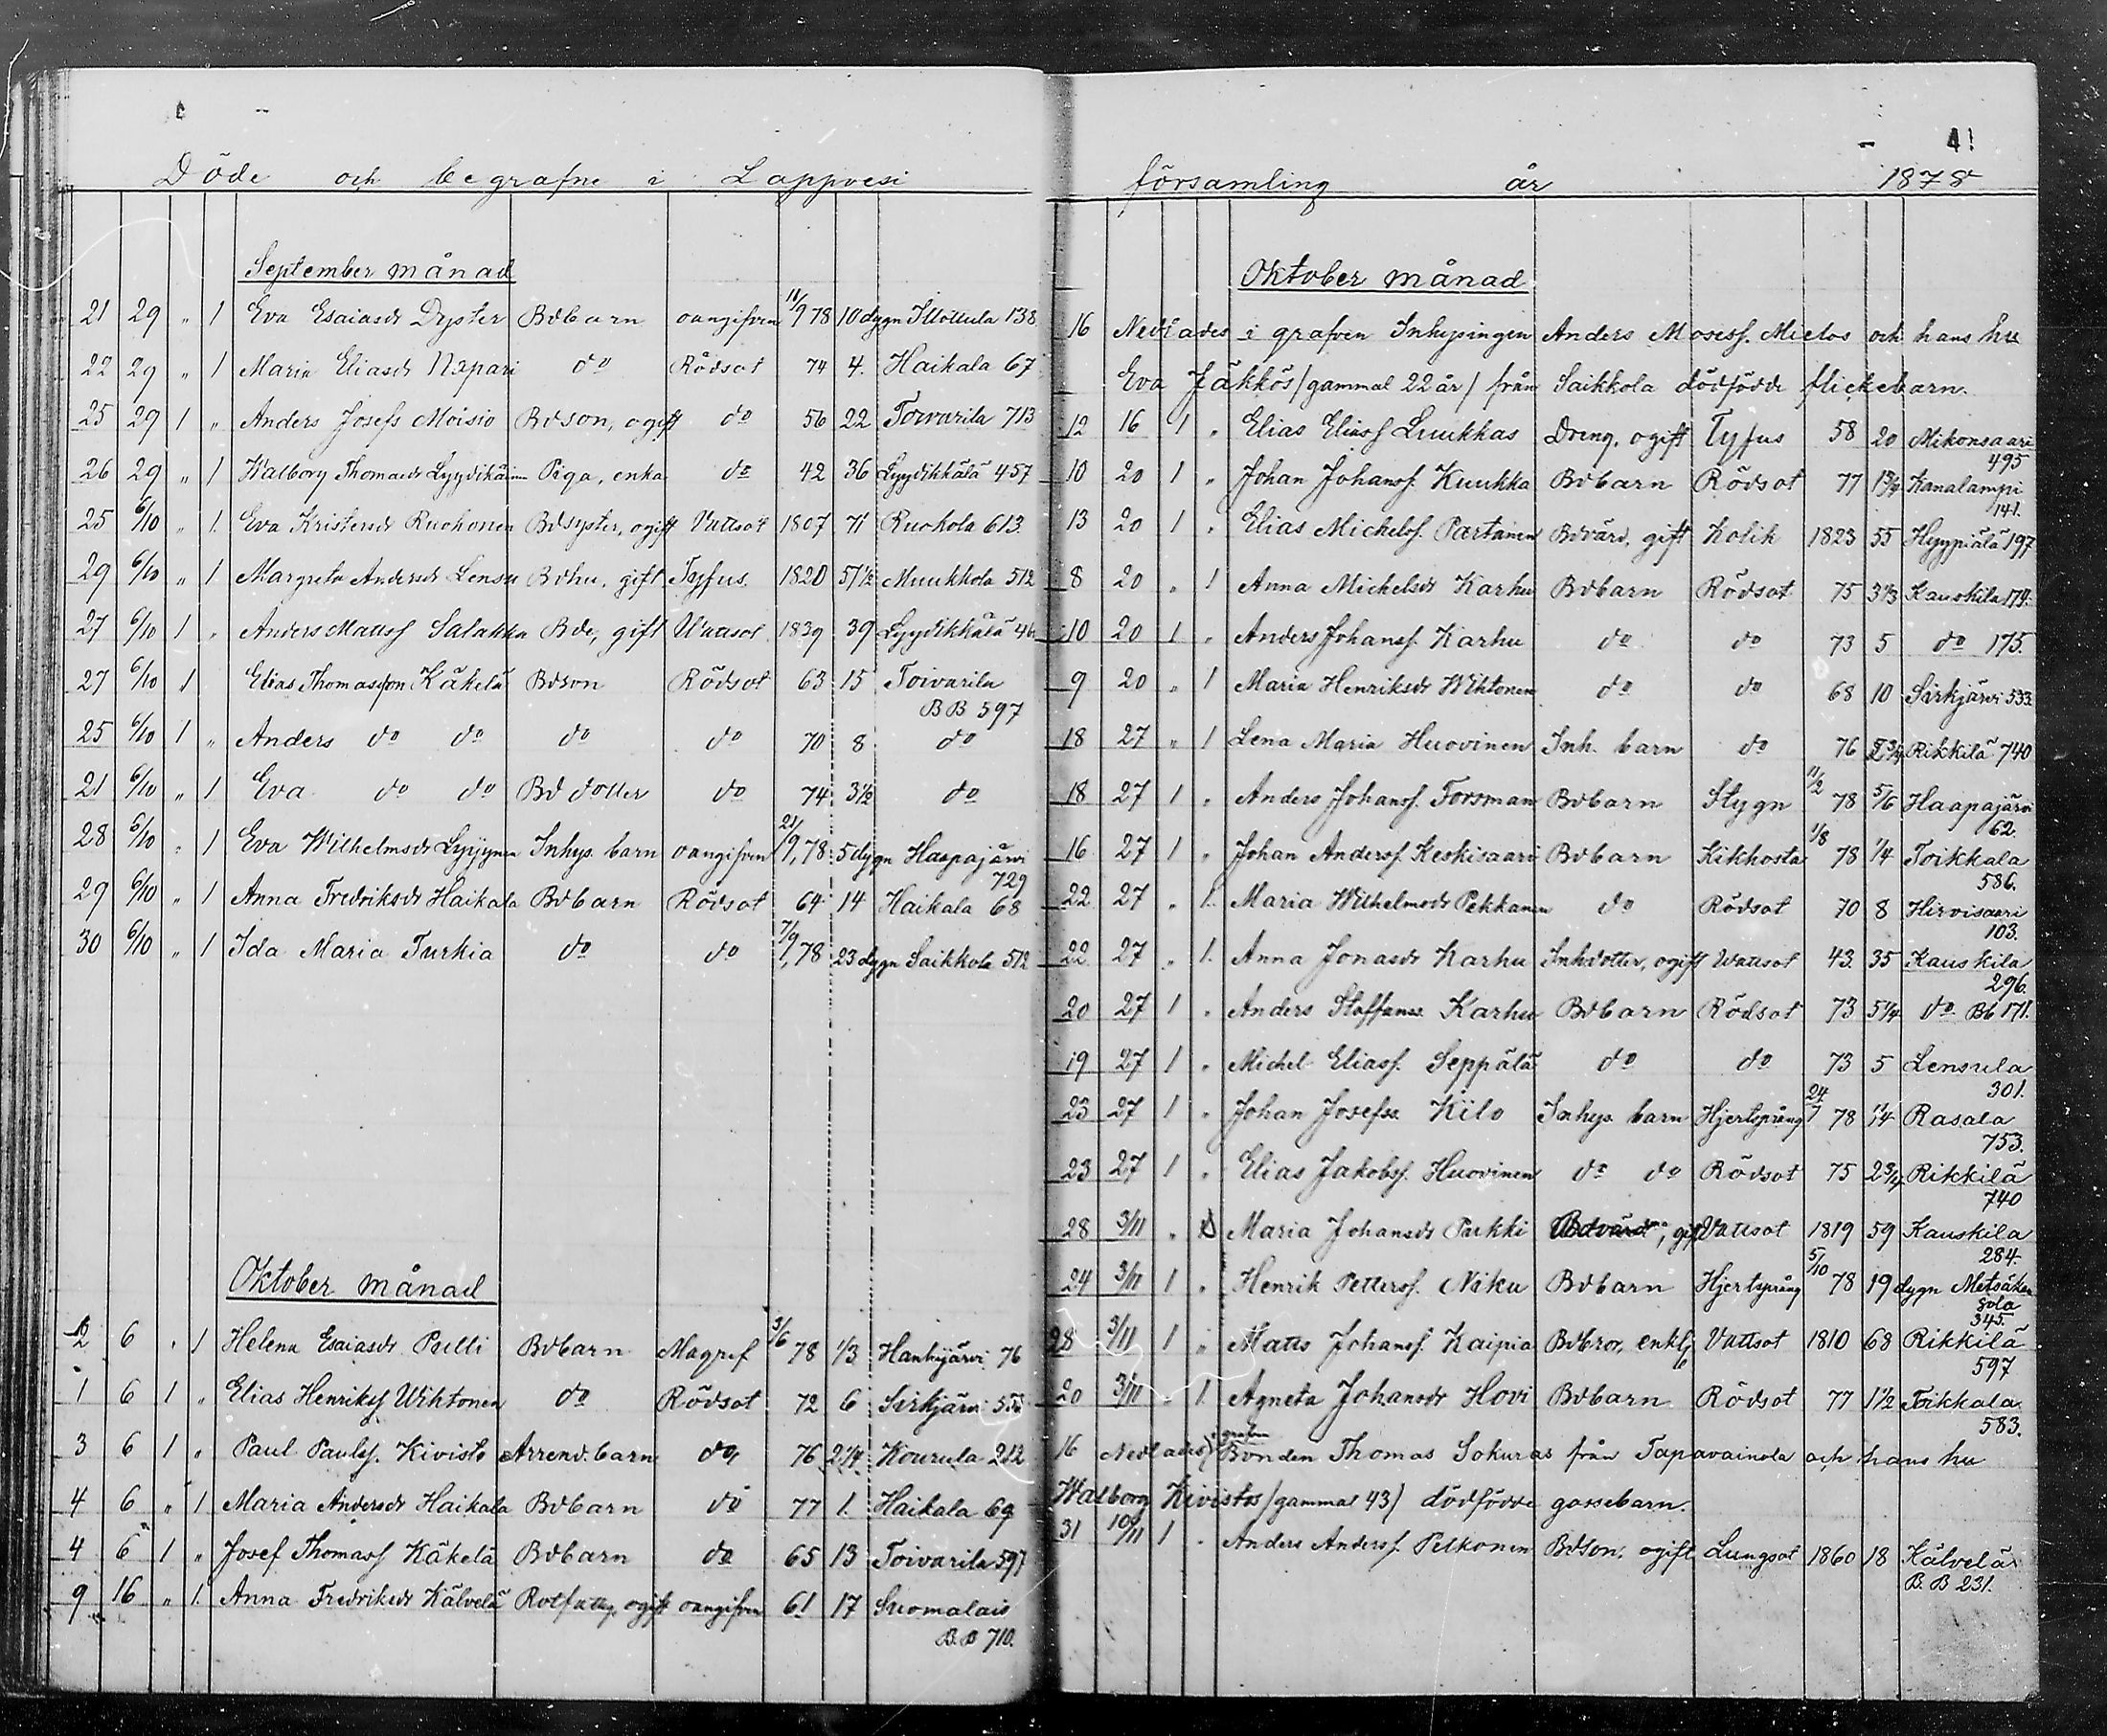 Döde och begrafne i Lappvesi
September månad
21 29 " 1 Eva Esaiasdr Dyster Bdbarn oangifven 11/9 78 10 dygn Illottula 138
22 29 " 1 Maria Eliasdr Näpäri do Rödsot 74 4. Haikala 67
25 29 1 " Anders Josefs Moisio Bdson, ogift do 56 22 Toivarila 713
26 29 " 1 Walborg Thomasdr Lyydikäinen Piga, enka do 42 36 Lyydikkälä 457
25 6/10 " 1. Eva Kristersdr Ruohonen Bdsyster, ogift Vattsot 1807 71 Ruohola 613.
29 6/10 " 1 Margreta Andersdr Lensu Bdhu. gift Tyfus. 1820 57 1/2 Muukkola 512
27 6/10 1 " Anders Mattsf Salakka Bde, gift Wattsot 1839 39 Lyydikkälä 46
27 6/10 1 Elias Thomasson Käkelä Bdson Rödsot 63 15 Toivarila
BB 597
25 6/10 1 " Anders do do do do 70 8 do
21 6/10 " 1 Eva do do Bd dotter do 74 3 1/2 do
28 6/10 " 1 Eva Wilhelmsdr Lyyjynen Inhys. barn oangifven 21/9, 78 5 dygn Haapajärvi
729
29 6/10 " 1 Anna Fredriksdr Haikala Bdbarn Rödsot 64 14 Haikala 68
30 6/10 " 1 Ida Maria Turkia do do 7/9, 78 23 dygn Saikkola 512
Oktober månad
2 6 " 1 Helena Esaiasdr Pulli Bdbarn Magref 3/6 78 1/3 Hanhijärvi 76
1 6 1 " Elias Henrikss Wihtonen do Rödsot 72 6 Sirkjärvi 533
3 6 1 " Paul Paulsf. Kivisto Arrend. barn do, 76 2 1/4 Kourula 212
4 6 " 1 Maria Andersdr Haikala Bdbarn do 77 1. Haikala 69
4 6 1 " Josef Thomasf Käkelä Bdbarn do 65 13 Toivarila 597
9 16 " 1. Anna Fredriksdr Kälvelä Rotfattig, ogift oangifven 61 17 Suomalais
B.B 710.
församling år 1878
41
Oktober månad
16 Nedlades i grafven Inhysingen Anders Mosesf. Mielos och hans hu
Eva Jäkkös (gammal 22 år) från Saikkola dödfödde flickebarn.
12 16 1 " Elias Eliasf Luukkas Dreng, ogift Tyfus 58 20 Mikonsaari
495
10 20 1 " Johan Johansf. Kuukka Bdbarn Rödsot 77 1 3/4 Kanalampi
141.
13 20 1 " Elias Michelsf. Partanen Bdvärd, gift Kolik 1823 55 Hyypiälä 197
8 20 " 1 Anna Michelsdr Karhu Bdbarn Rödsot 75 3 1/3 Kauskila 174.
10 20 1 " Anders Johansf. Karhu do do 73 5 do 175.
9 20 " 1 Maria Henriksdr Wihtonen do do 68 10 Sirkjärvi 533
18 27 " 1 Lena Maria Huovinen Inh. barn do 76 2 3/4 Rikkilä 740
18 27 1 " Anders Johansf. Forsman Bdbarn Stygn 11/2 78 5/6 Haapajärvi
62.
16 27 1 " Johan Andersf. Keskisaari Bdbarn Kikhosta 1/8 78 1/4 Toikkala
586.
22 27 " 1. Maria Wilhelmsdr Pekkanen do Rödsot 70 8 Hirvisaari
103.
22 27 " 1. Anna Jonasdr Karhu Inhdotter, ogift Wattsot 43. 35 Kauskila
296.
20 27 1 " Anders Staffanss. Karhu Bdbarn Rödsot 73 5 1/4 do Bb 171.
19 27 1 " Michel Eliasf. Seppälä do do 73 5 Lensula
301.
23 27 1 " Johan Josefss. Kiilo Inhys. barn Hjertsprång 24/7 78 1/4 Rasala
753.
23 27 1 " Elias Jakobsf. Huovinen do do Rödsot 75 2 3/4 Rikkilä
740
28 3/11 " 1 Maria Johansdr Pukki Bdvärd, gift Vattsot 1819 59 Kauskila
284.
24 3/11 1 " Henrik Pettersf. Niku Bdbarn Hjertsprång 5/10 78 19 dygn Metsäkan
sola
345
28 3/11 1 " Matts Johansf. Kaipia Bdbror, enkl Vattsot 1810 68 Rikkilä
597
20 3/11 " 1. Agneta Johansdr Hovi Bdbarn Rödsot 77 1 1/2 Toikkala
583.
16 Nedlades i grafven Bonden Thomas Sokuras från Tapavainola och hans hu
Walborg Kivistos (gammal 43) dödfödde gossebarn.
31 10/11 1 " Anders Andersf. Pelkonen Bdson, ogift Lungsot 1860 18 Kälvelä
B.B 231.